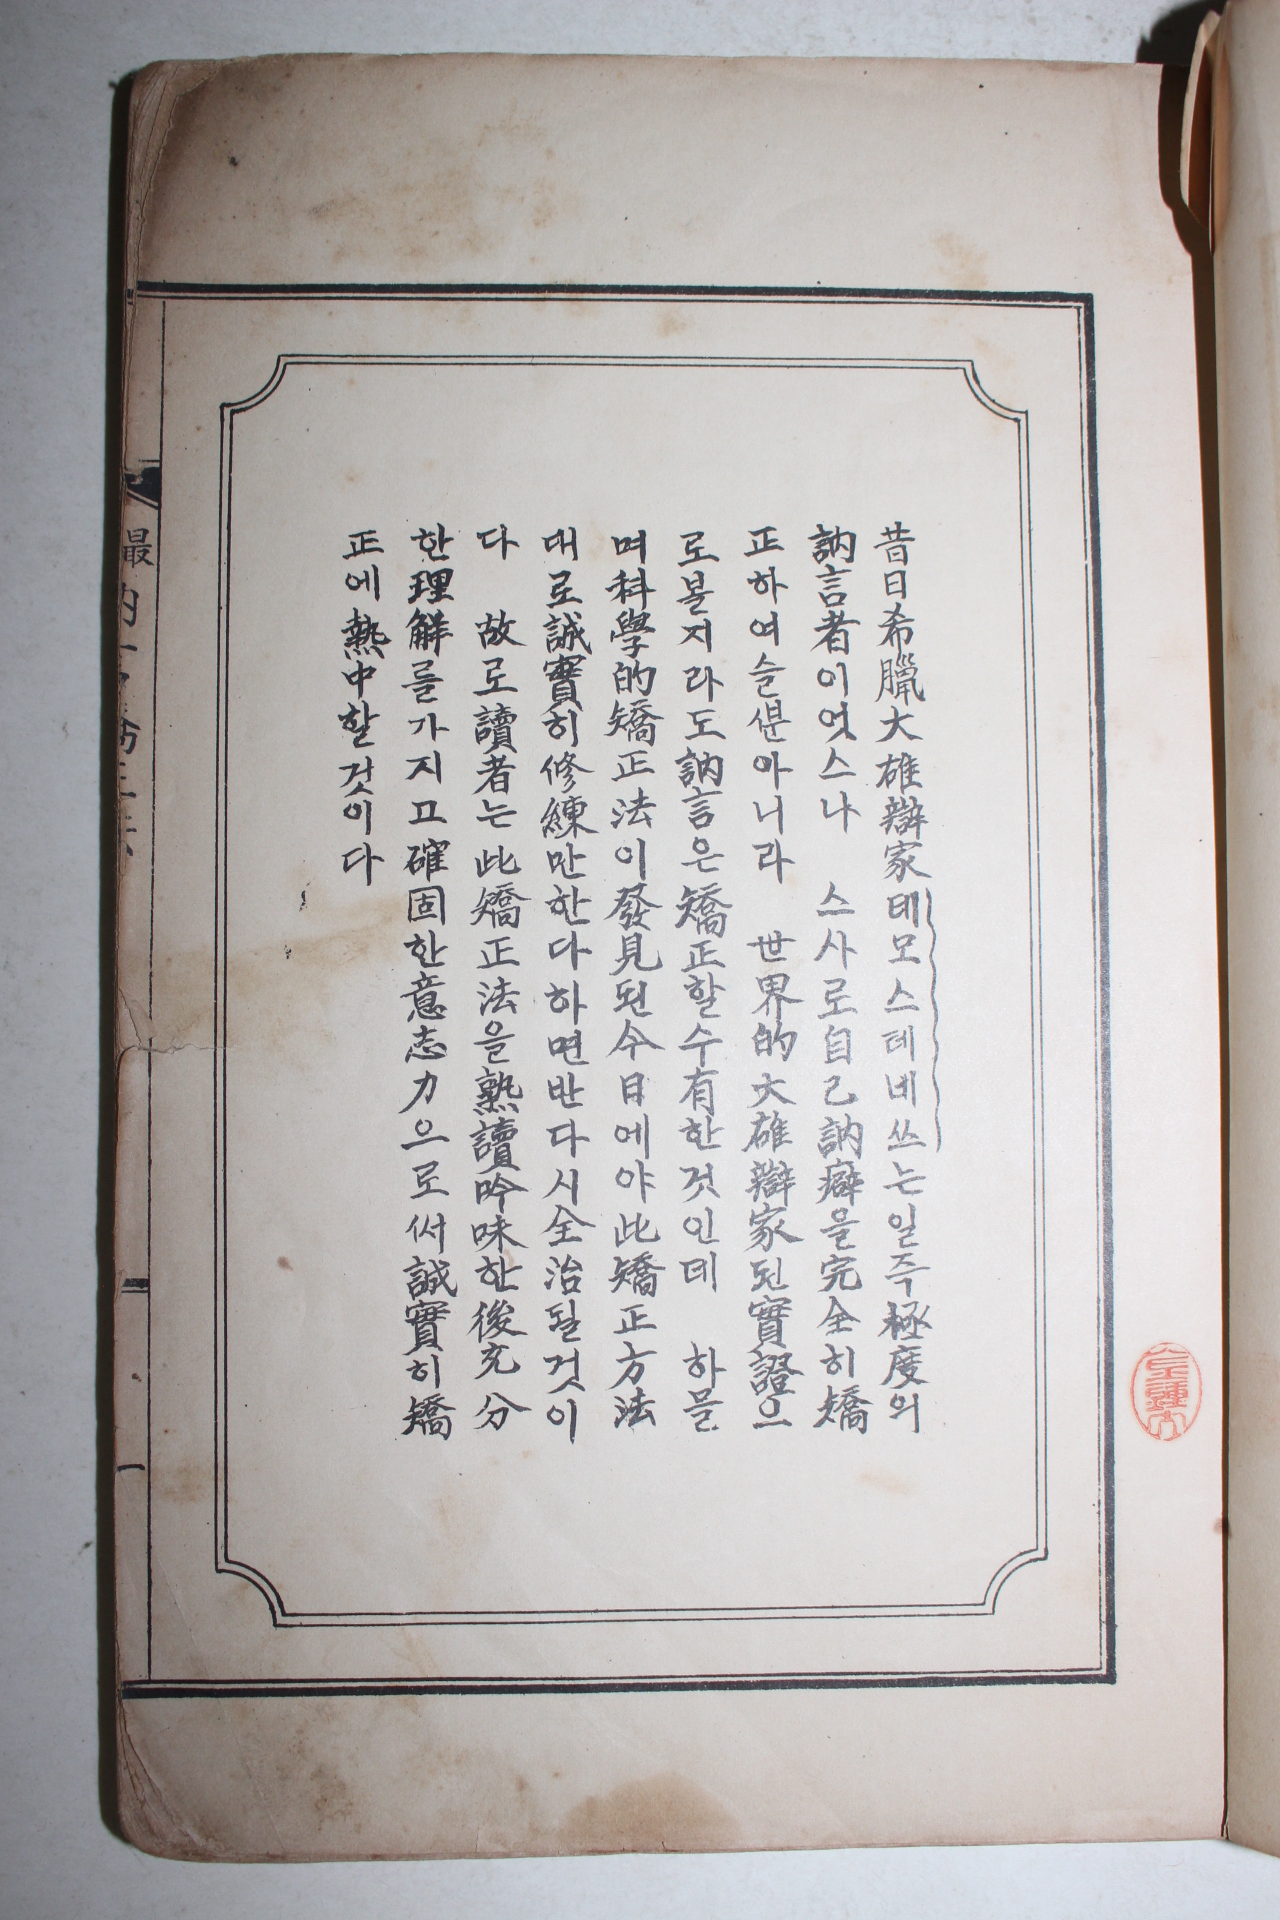 昔日希臘大雄辯家데모스데네쓰는일즉極度의
訥言者이엿스나 스사로自己訥癖을完全히矯
正하여슬ᄲᅮᆫ아니라 世界的大雄辯家된實證으
로볼지라도訥言은矯正할수有한것인데 하믈
며科學的矯正法이發見된今日에야此矯正方法
대로誠實히修練만한다하면반다시全治될것이
다 故로讀者는此矯正法을熟讀吟味한後充分
한理解를가지고確固한意志力으로써誠實히矯
正에熱中할것이다
最
一